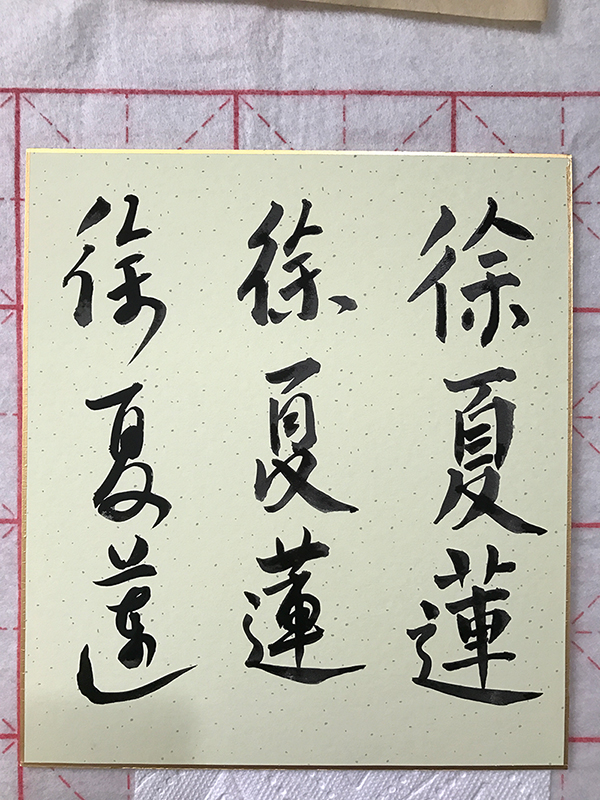 徐夏蓮
徐夏蓮
徐夏蓮